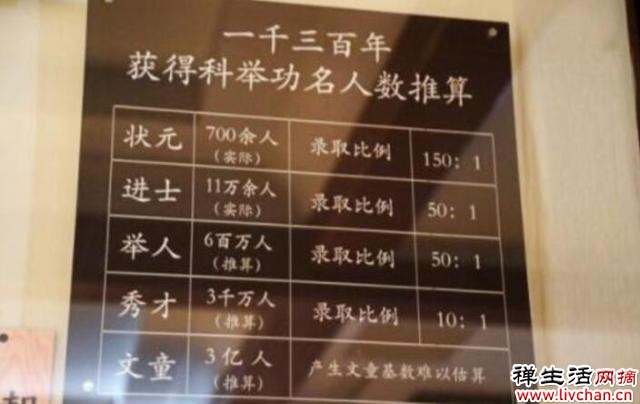 一千三百年
获得科举功名人数推算
状元 700余人 录取比例 150：1
(实际)
进士 11万余人 录取比例 50：1
(实际)
举人 6百万人 录取比例 50：1
(推算)
秀才 3千万人 录取比例 10：1
(推算)
文童 3亿人 产生文童基数难以估算
(推算)
禅生活网摘
www.livchan.cn